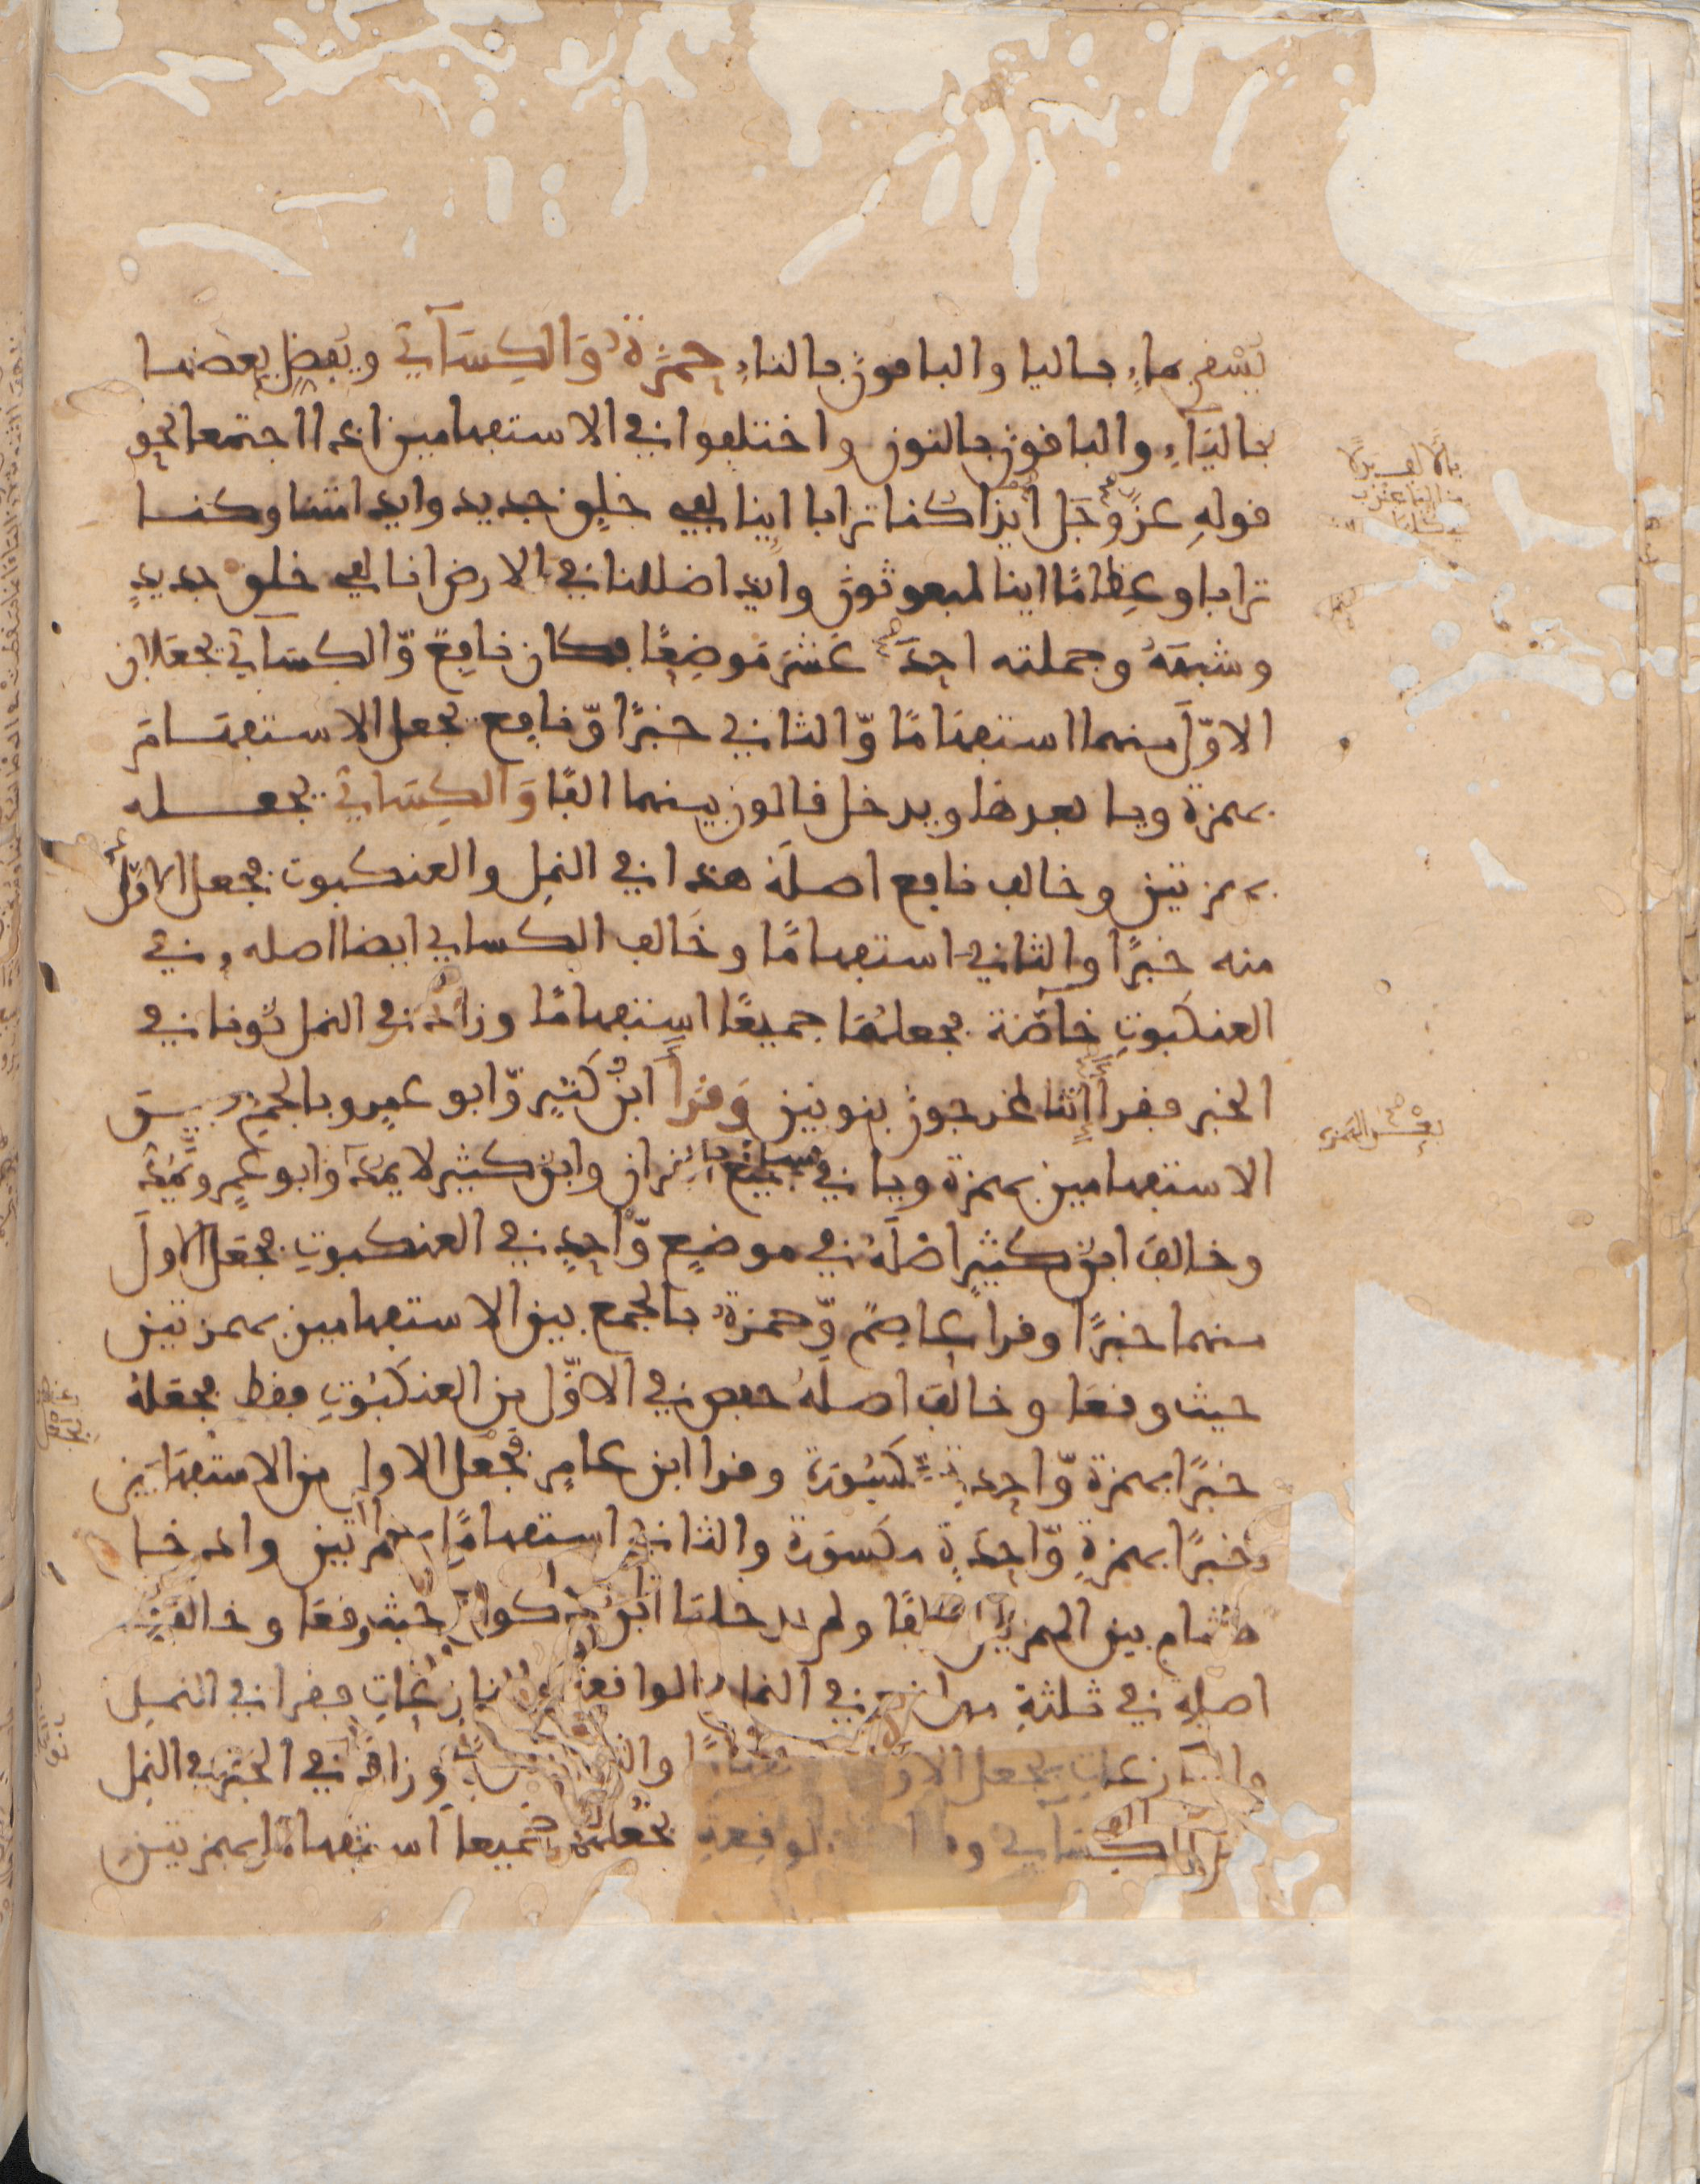 يسقى بماءٍ باليا والباقون بالتاءِ حمزةُ وَالكِسَآئي ويفضل بعضها
بالياءِ والباقون بالنون واختلفوا في الاستفهامين اذا اجتمعا نحو
قولهِ عزّ وجَل أيذا كنا ترابا اينا لفي خلق جديد وايذا متنا وكنا
ترابا وعِظامًا اينا لمبعوثون وايذا ضللنا في الارض انا لفي خلق جديدٍ
وشبههُ وجملته احدَ عَشَرَ مَوضِعًا فكان نافِعٌ وّالكِسَآئي يجعَلان
الاوّلَ منهما استفهَامًا وّالثاني خبرًا وّنافِع يجعل الاستفهَامَ
بهمزة ويا بعدها ويدخل قالون بينهما الفًا وَالكِسَائي يجعله
بهمزتين وخالف نافع اصلَهُ هذا في النمل والعنكبوت فجعل الاوّلَ
منه خبرًا والثاني استفهامًا وخَالف الكسائي ايضا اصله في
العنكبوتِ خآصّة فجعلهُمَا جميعًا استفهامًا وزاد في النمل نُونا في
الخبر فقرأ إننا لمخرجون بنونين وَقرأ ابنُ كَثيرٍ وّابو عمرٍو بالجمع بين
الاستفهامين بهمزة ويا في جميع القران وابن كثير لا يمدّ وابو عمرٍو يمُدّ
وخالفَ ابن كثيرٍ اصْلَهُ في موضِعٍ وّاحِدٍ في العنكبوتِ فجعَل الاولَ
منهما خبرًا وقرا عاصِمٌ وّحمزةُ بالجمع بين الاستفهامين بهمزتين
حيث وقعَا وخالفَ اصلَهُ حفص في الاوَّل من العنكبُوتِ فقط فجعَلهُ
خبرًا بهمزة وّاحِدةٍ مَّكسُورَة وقرا ابن عامرٍ فجعل الاول من الاستفهامين
خبرًا بهمزةٍ وّاحِدَةٍ مكسورَة والثاني استفهامًا بهمزتين وادخل
هشام بين الهمزتين الفًا ولم يدخلها ابنُ ذكوان حيث وقعَا وخالف
اصلهُ في ثلثةِ مواضع في النمل والواقعة والنازِعَاتِ فقرا في النمل
والنازعات يجعل الاول استفهامًا والثاني خبرًا وزاد في الخبر في النمل
نونا كالكسائي وقرا في الواقعةِ يجعلهما جميعا استفهامًا بهمزتين